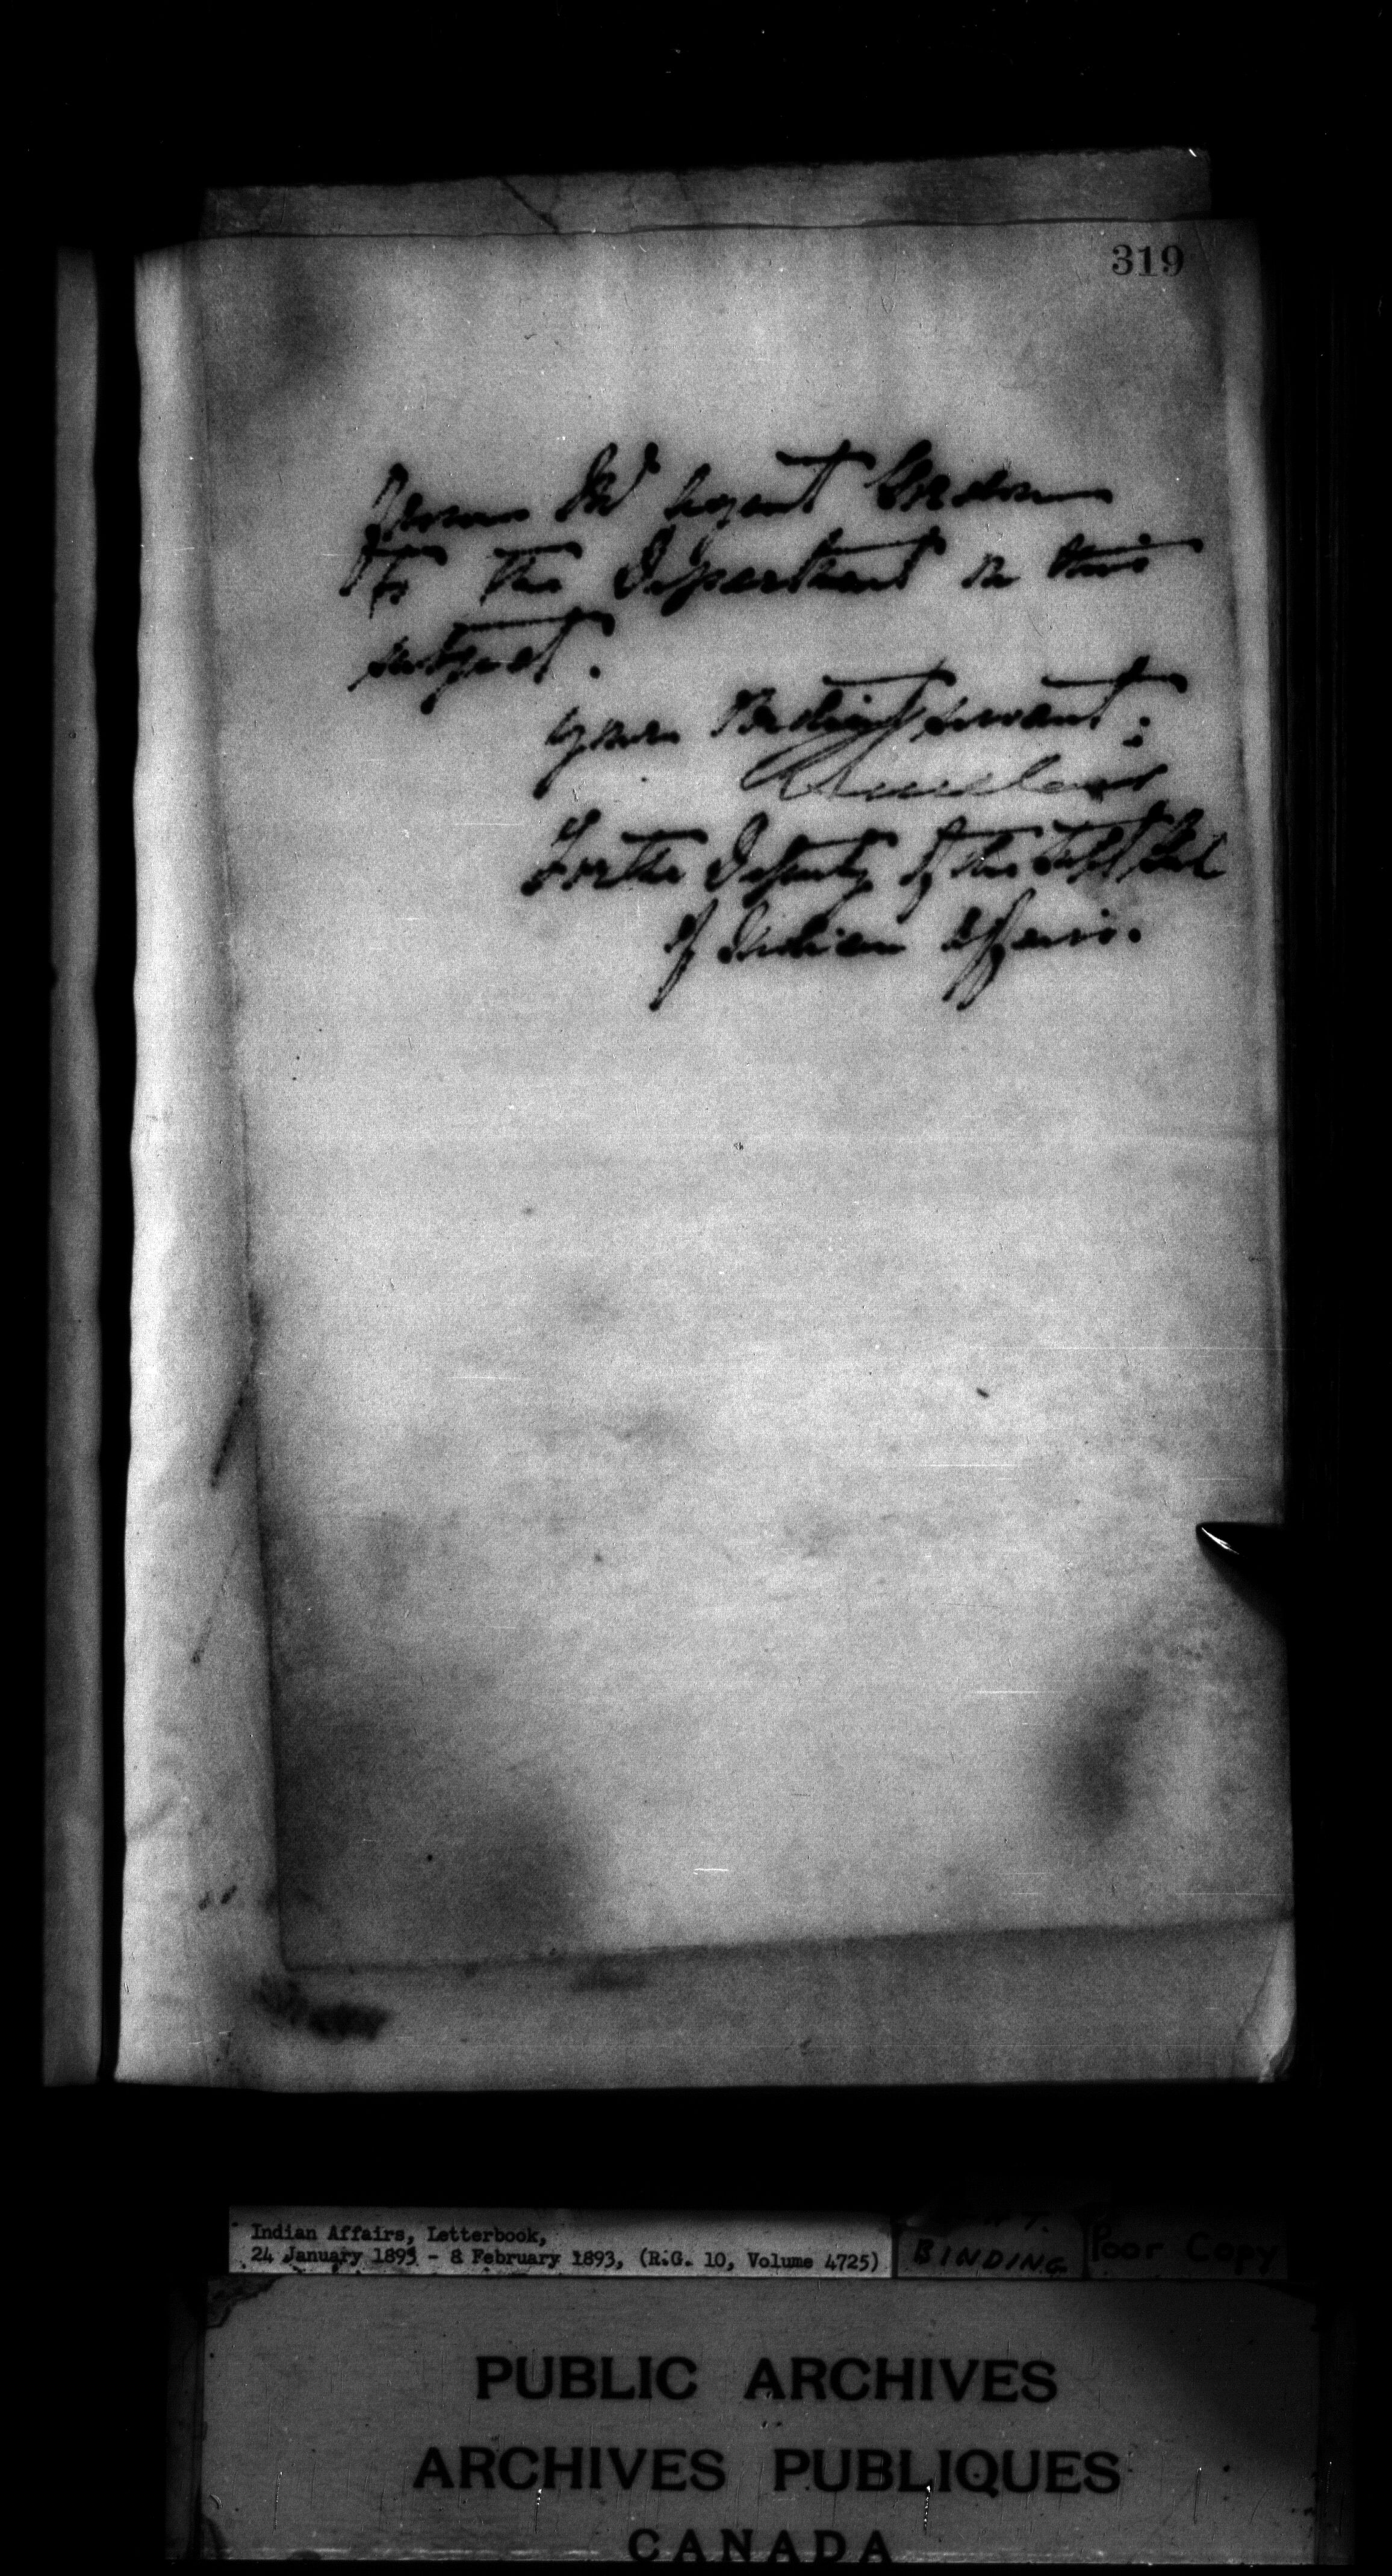 319
from Mr Agent Gordon
to the Department on this
subject.
Your obedient servant;
For the Deputy of the Supt Genl
of Indian Affairs.
Indian Affairs, Letterbook,
24 January 1893 - 8 February 1893, (R.G. 10, Volume 4725)
BINDING
Poor Copy
PUBLIC ARCHIVES
ARCHIVES PUBLIQUES
CANADA